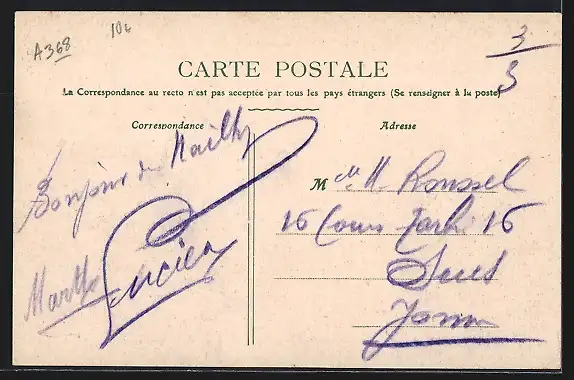 A368
106
3/3
CARTE POSTALE
La Correspondance au recto n'est pas acceptée par tous les pays étrangers (Se renseigner à la poste)
Correspondance
Adresse
Bonjour de Mailly
Marthe
Lucien
M elle M. Roussel
16 Cours 16
Sens
Yonne